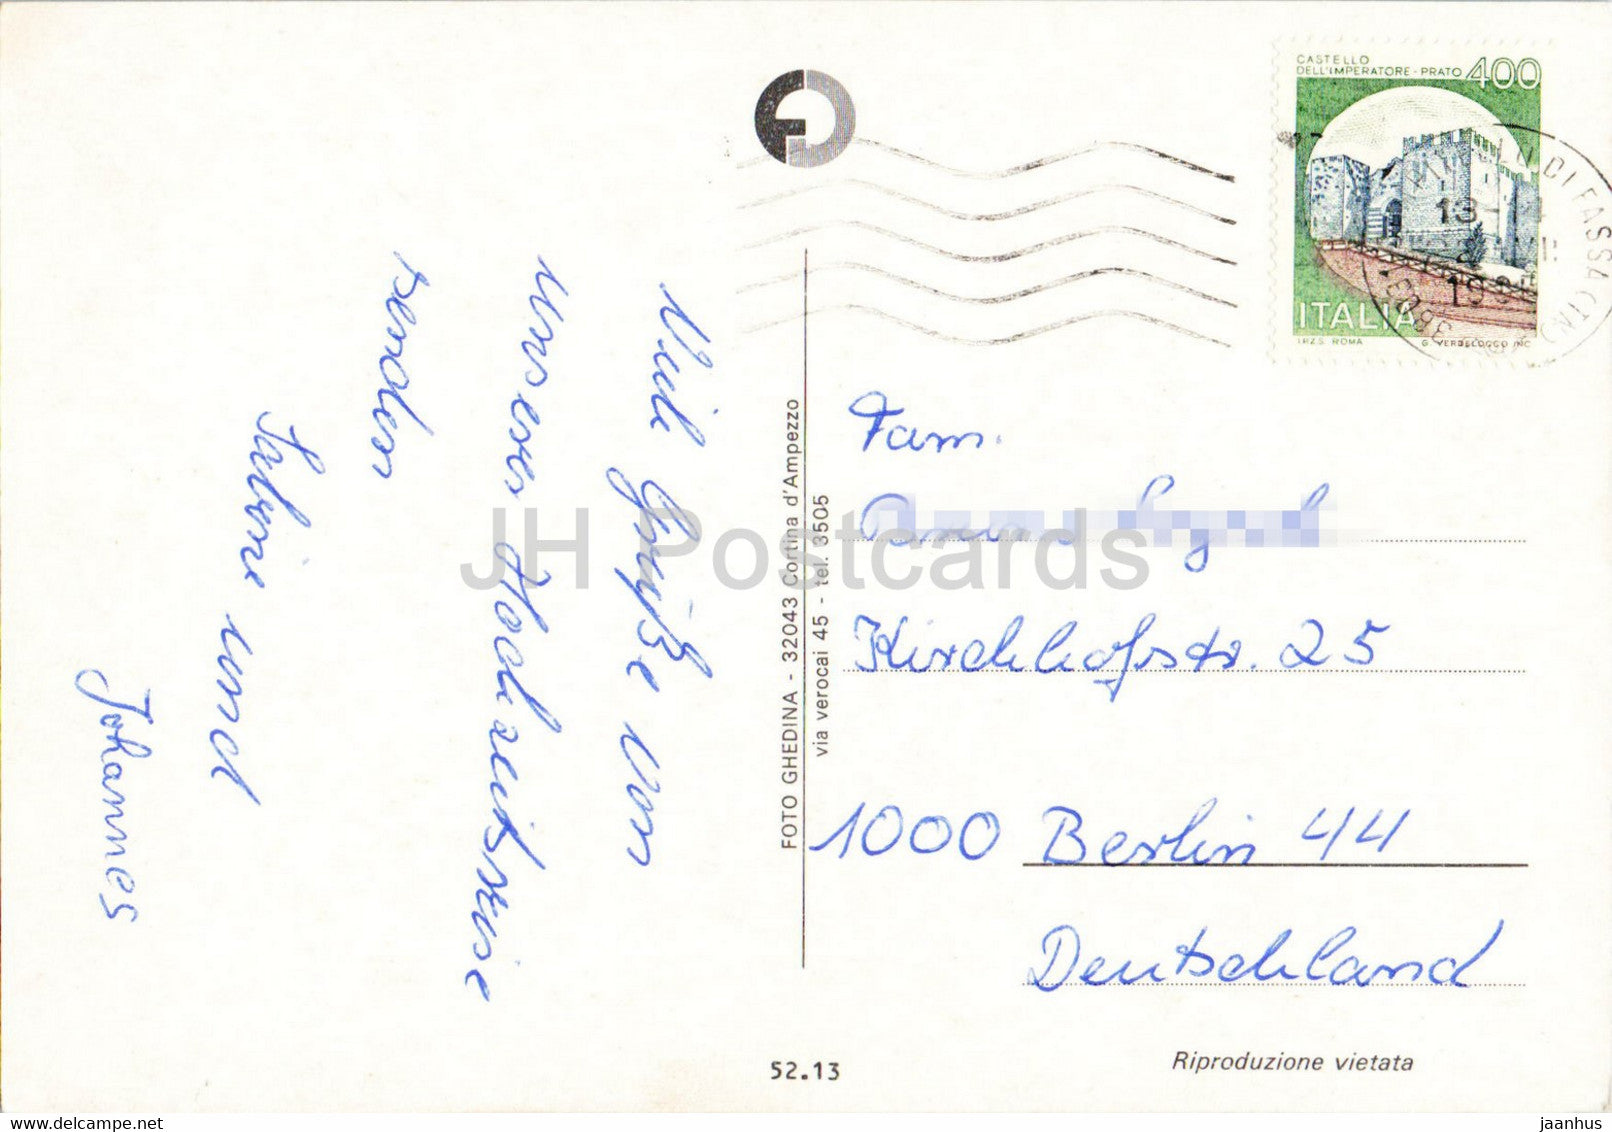 CASTELLO
DELL'IMPERATORE - PRATO 400
ITALIA
I.P.Z.S. ROMA G. VERDELOCCO INC.
DI FASSA
13
Viele Grüße von
unserer Hochzeitsreise
senden
Sabine und
Johannes
FOTO GHEDINA - 32043 Cortina d'Ampezzo
via verocai 45 - tel. 3505
Fam.
Kirchhofstr. 25
1000 Berlin 44
Deutschland
52.13
Riproduzione vietata
JH Postcards
jaanhus @ delcampe.net